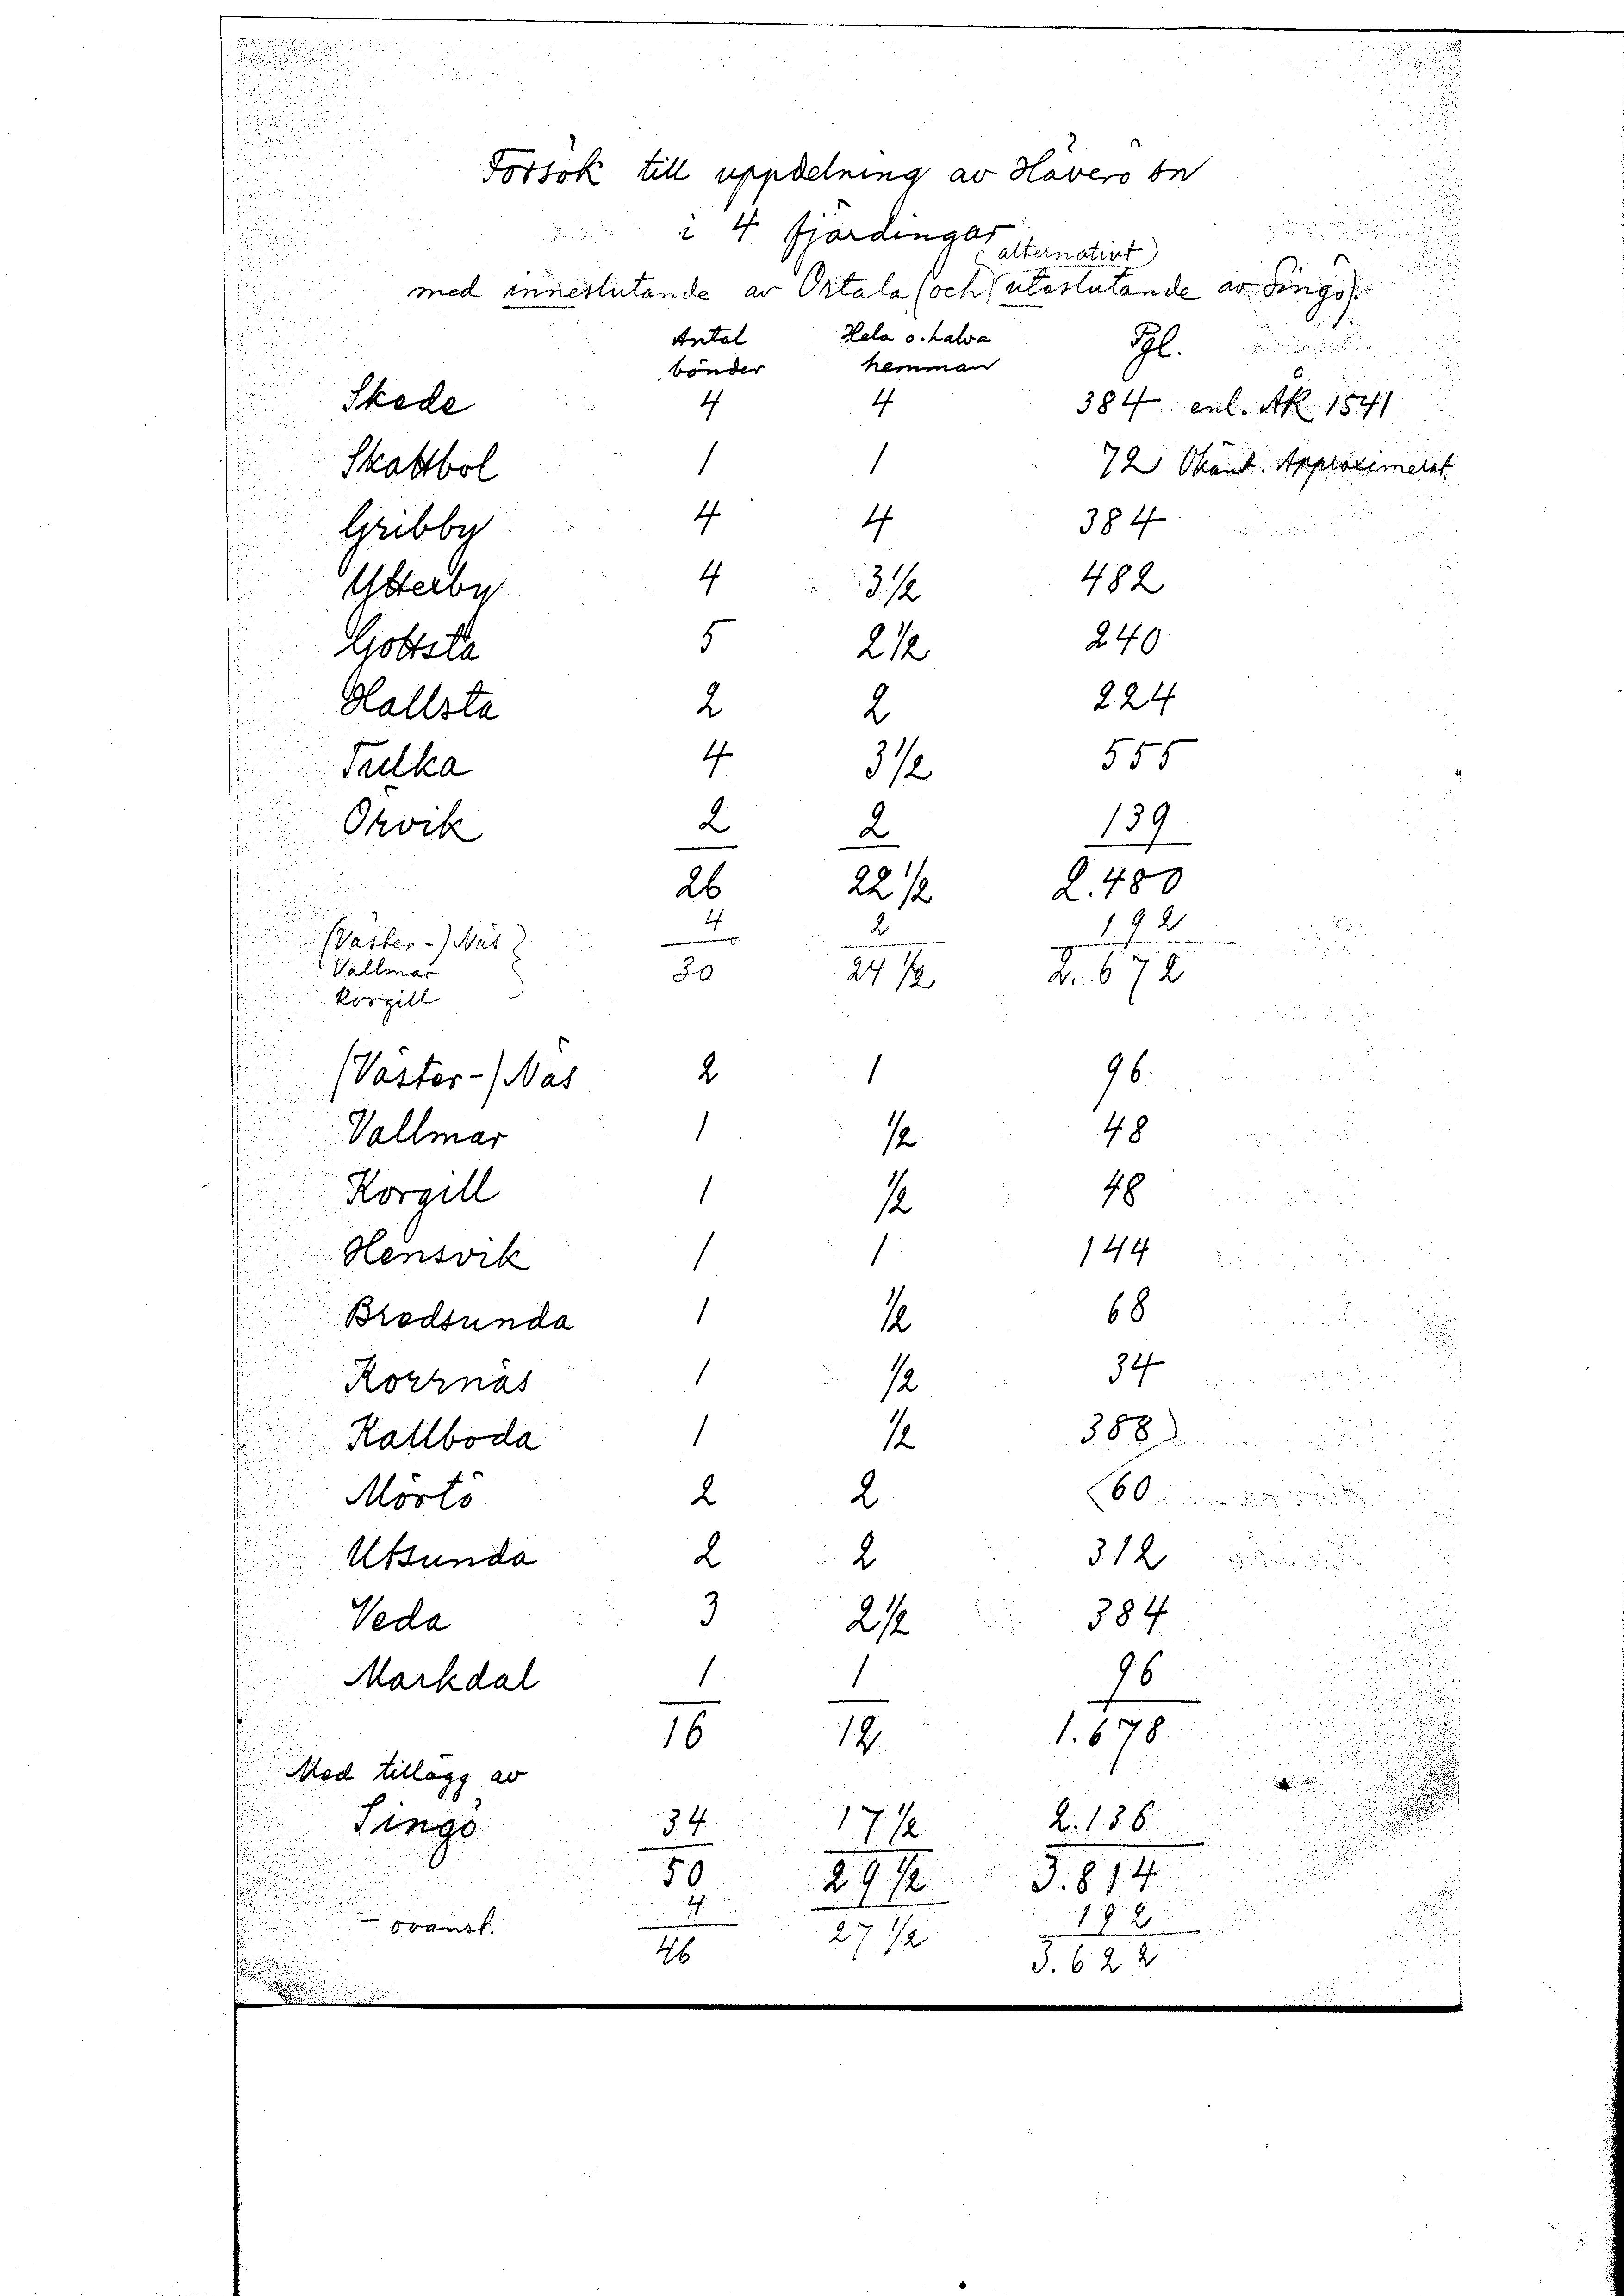 Försök till uppdelning av Häverö sn
i 4 fjärdingar
alternativt)
med inneslutande av Ortala (och) uteslutande av Singö).
Antal Hela o. halva Pgl.
bönder hemman
Skede 4 4 384 enl. ÅK 1541
Skattbol 1 1 72 Okänt. Approximerat.
Gribby 4 4 384
Ytterby 4 3 1/2 482
Gottsta 5 2 1/2 240
Hallsta 2 2 224
Tulka 4 3 1/2 555
Örvik 2 2 139
26 22 1/2 2.480
(Väster-) Näs } 4 2 192
Vallmar 30 24 1/2 2.672
Korgill
(Väster-) Näs 2 1 96
Vallmar 1 1/2 48
Korgill 1 1/2 48
Hensvik 1 1 144
Bredsunda 1 1/2 68
Korrnäs 1 1/2 34
Kallboda 1 1/2 388)
Mörtö 2 2 (60
Utsunda 2 2 312
Veda 3 2 1/2 384
Markdal 1 1 96
16 12 1.678
Med tillägg av
Singö 34 17 1/2 2.136
50 29 1/2 3.814
- ovanst. 4 192
46 27 1/2 3.622